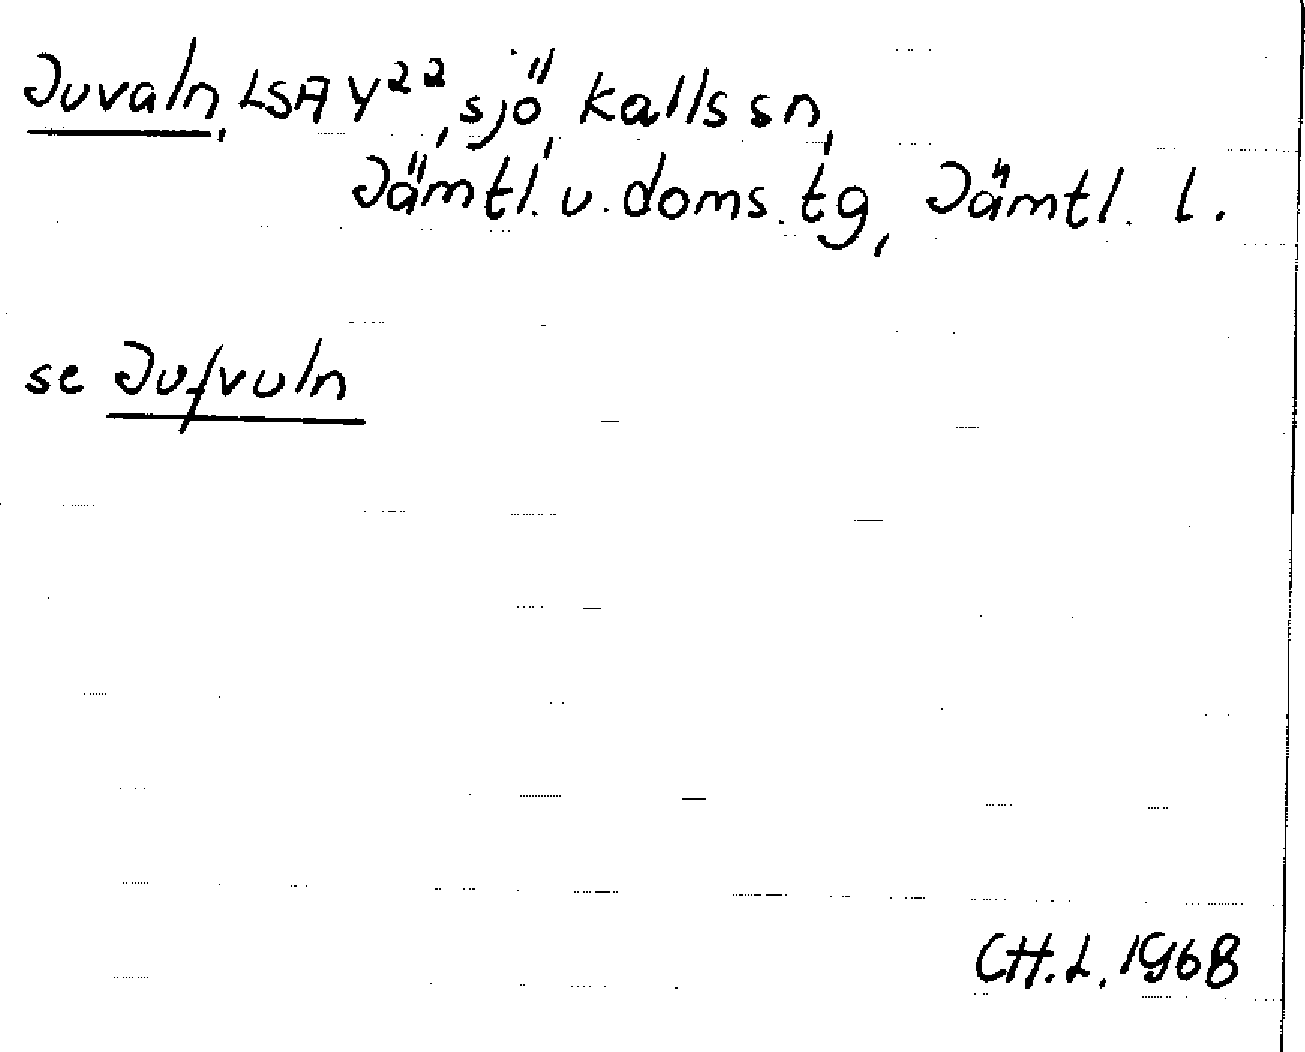 Juvaln, LSA Y²², sjö, Kalls sn,
Jämtl. v. doms. tg, Jämtl. l.
se Jufvuln
CH.L. 1968